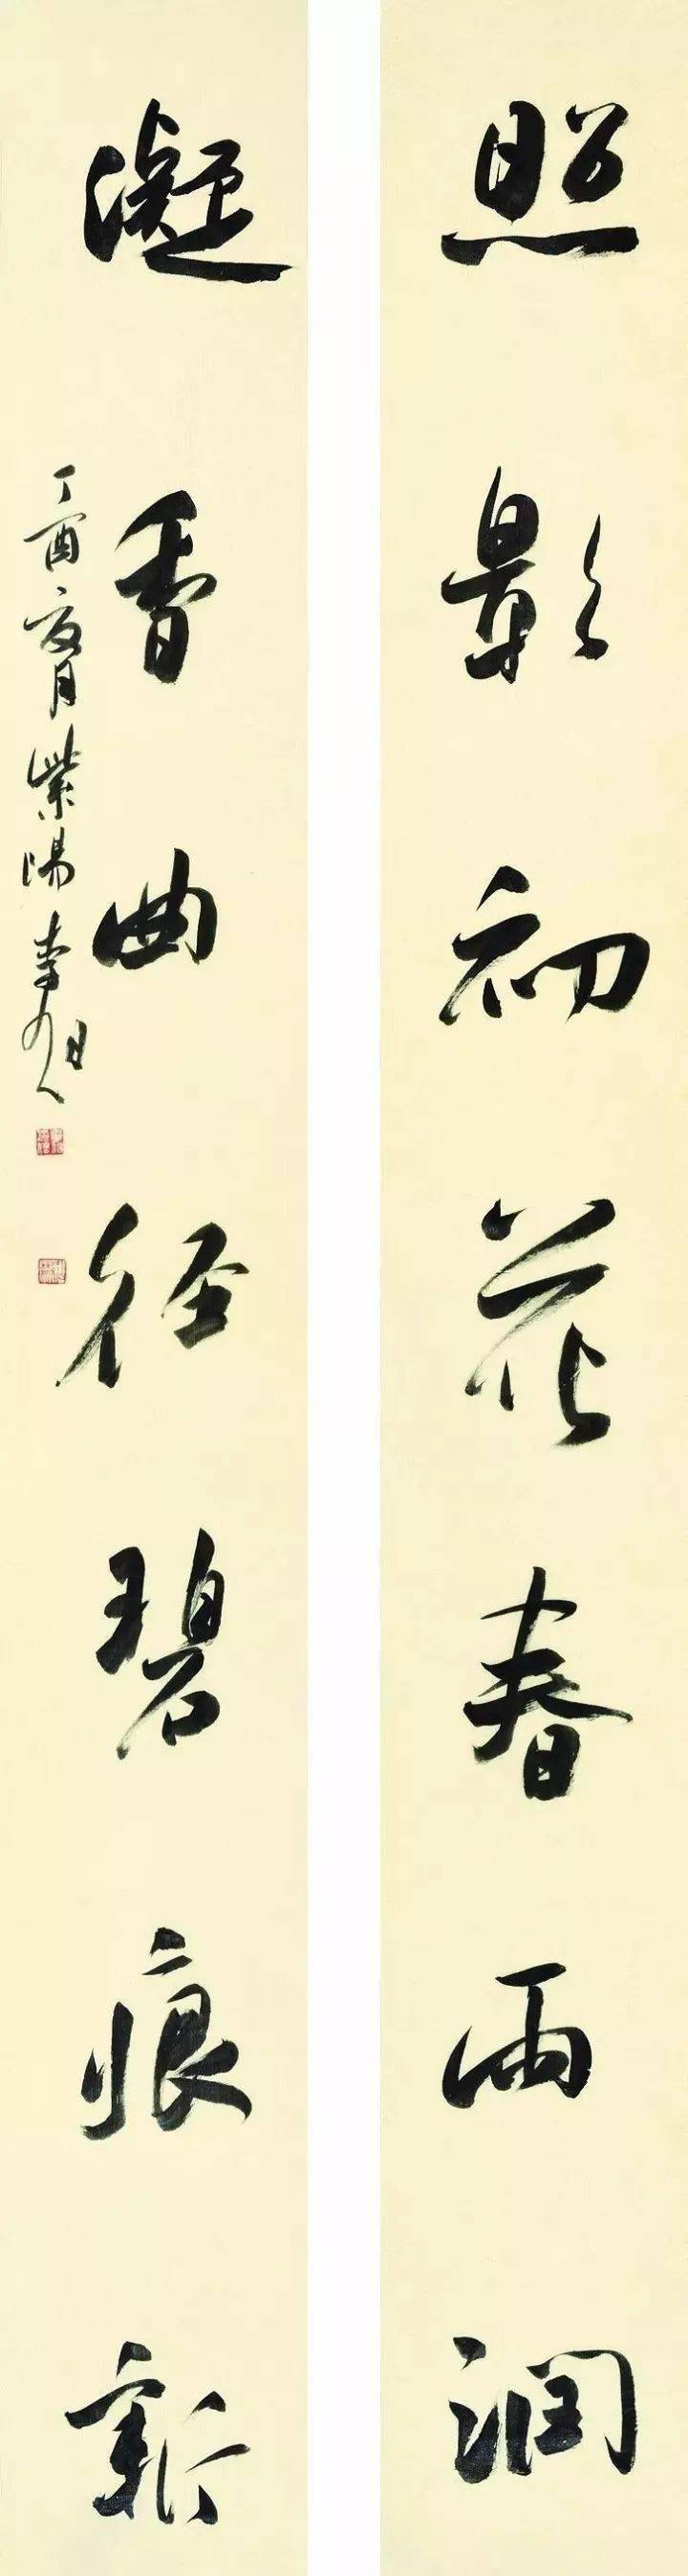 照影初花春雨润
凝香曲径碧痕新
丁酉夏月紫阳李